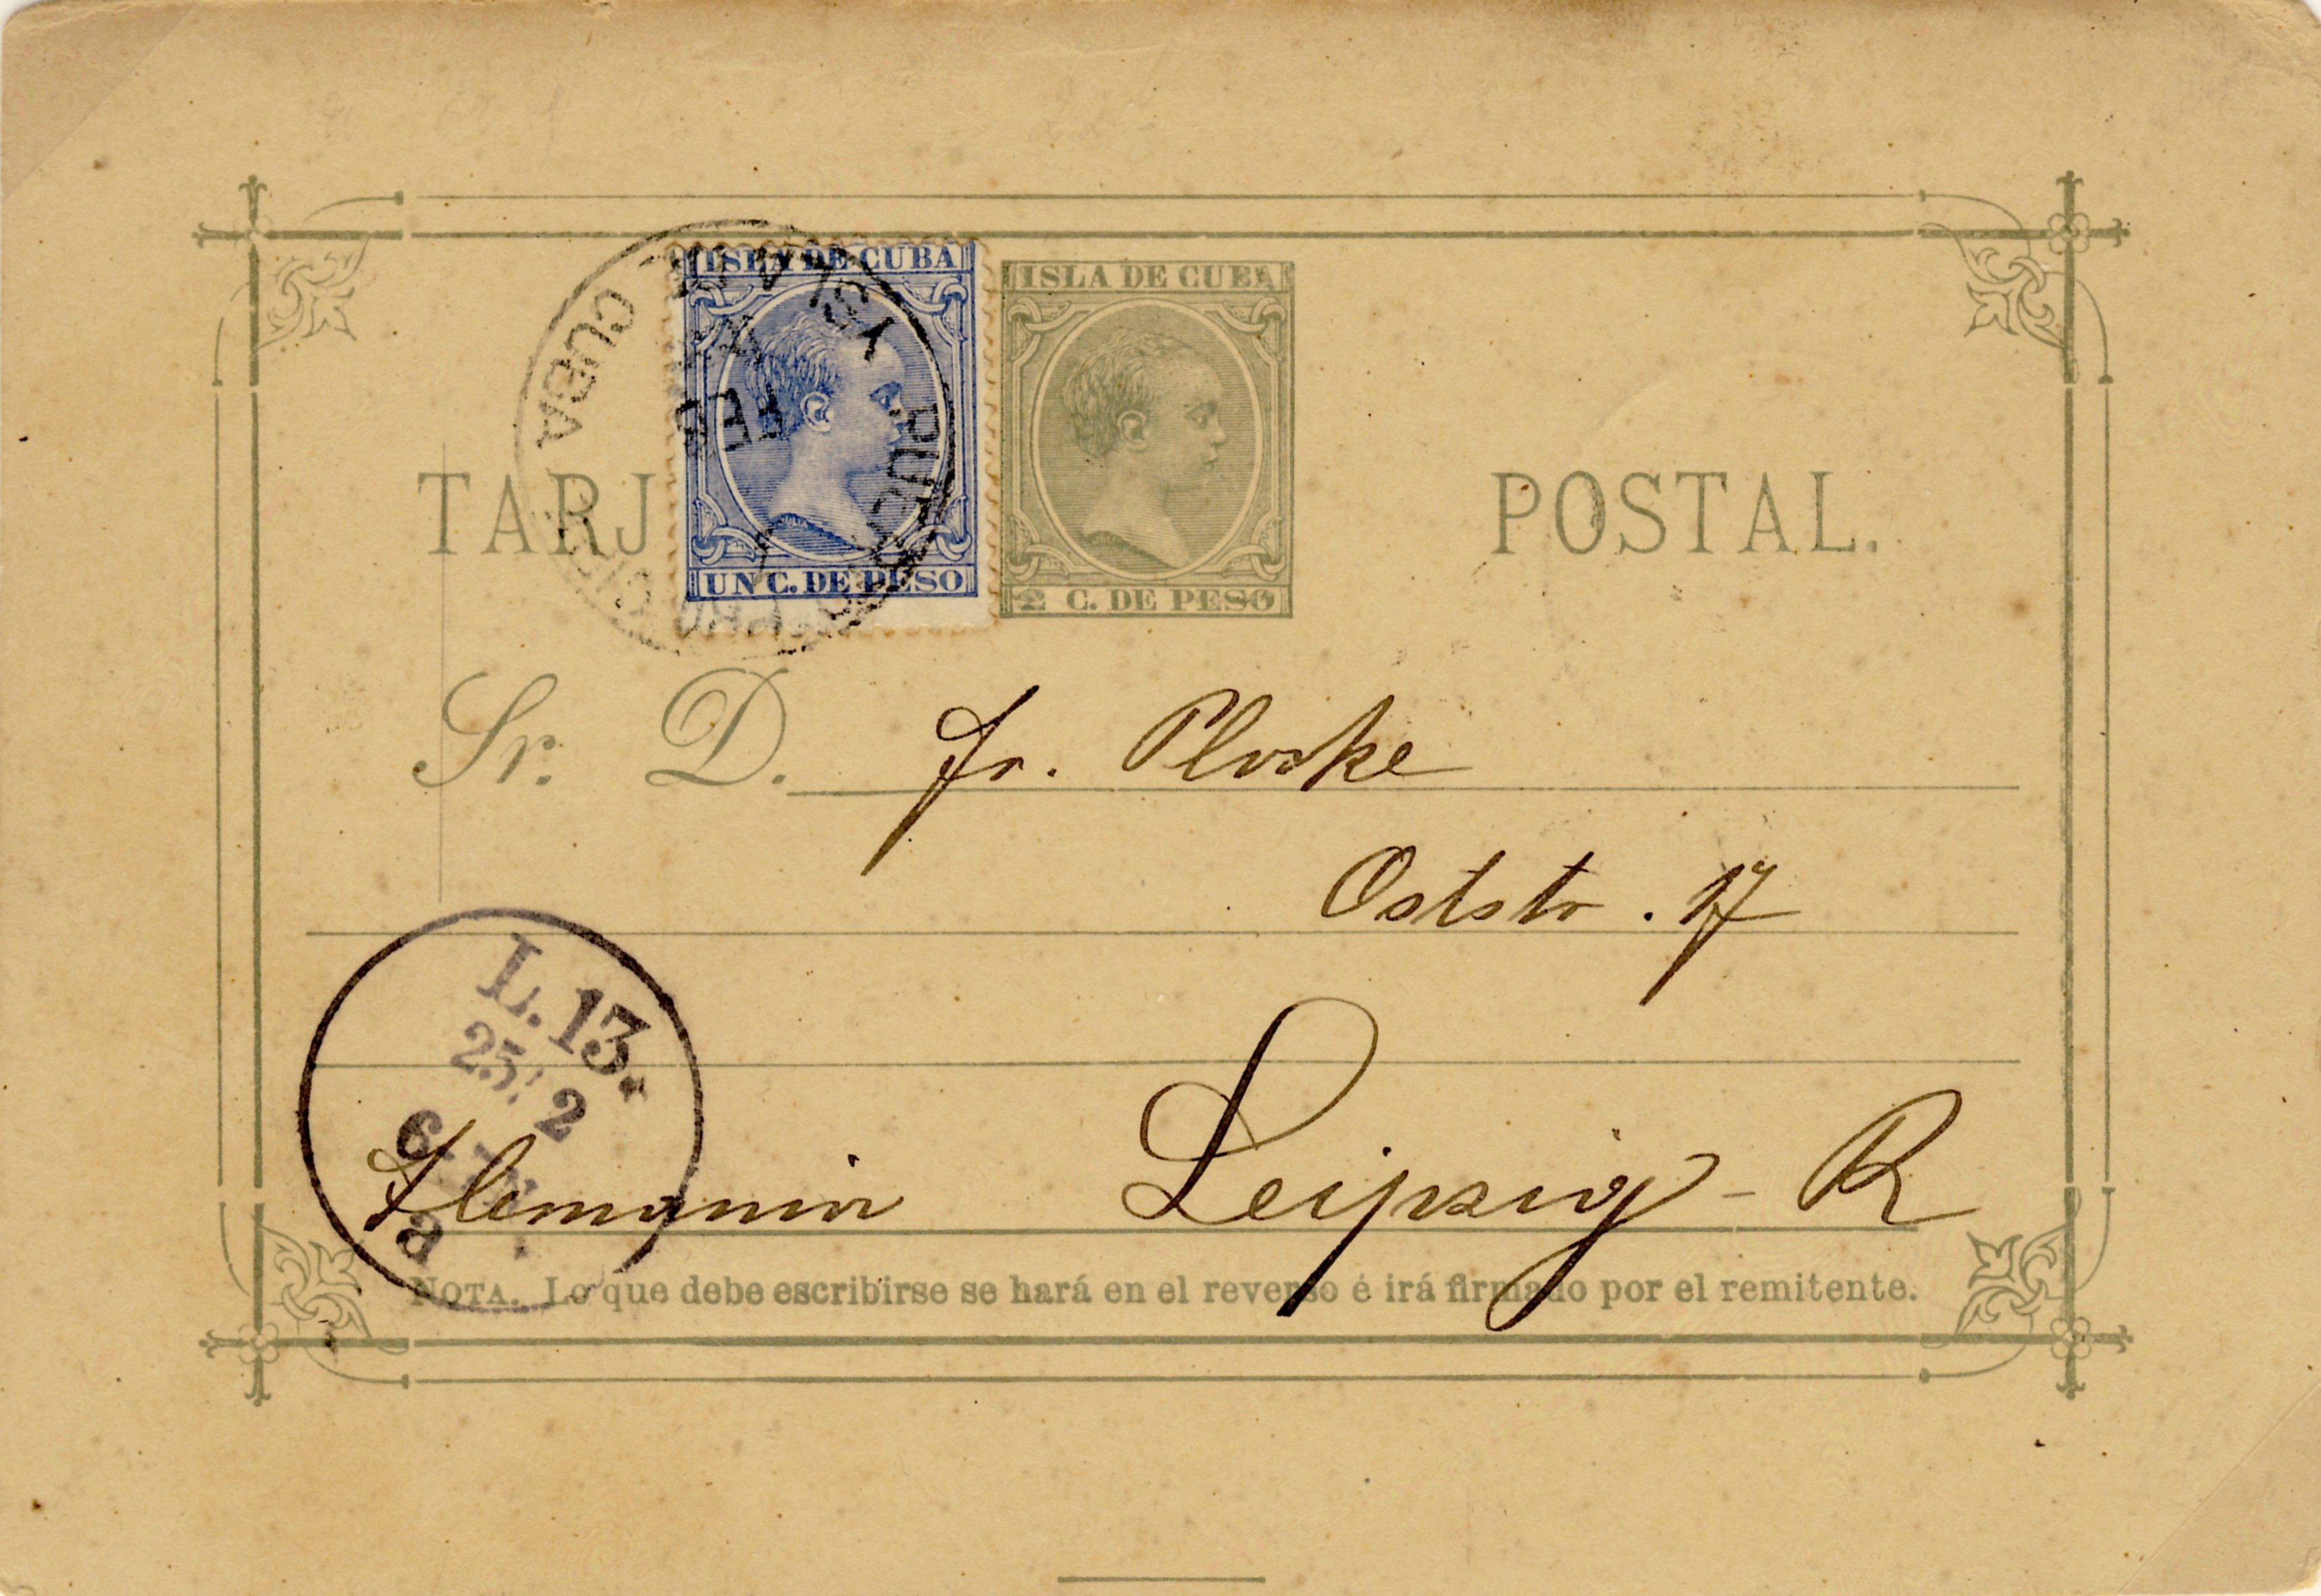 ISLA DE CUBA
UN C. DE PESO
ISLA DE CUBA
2 C. DE PESO
ISLA DE CUBA
FEB
TARJ POSTAL.
Sr. D. Fr. Ploske
Oststr. 17
L. 13.
25. 2
6
a
Alemania Leipzig - R
NOTA. Lo que debe escribirse se hará en el reverso é irá firmado por el remitente.